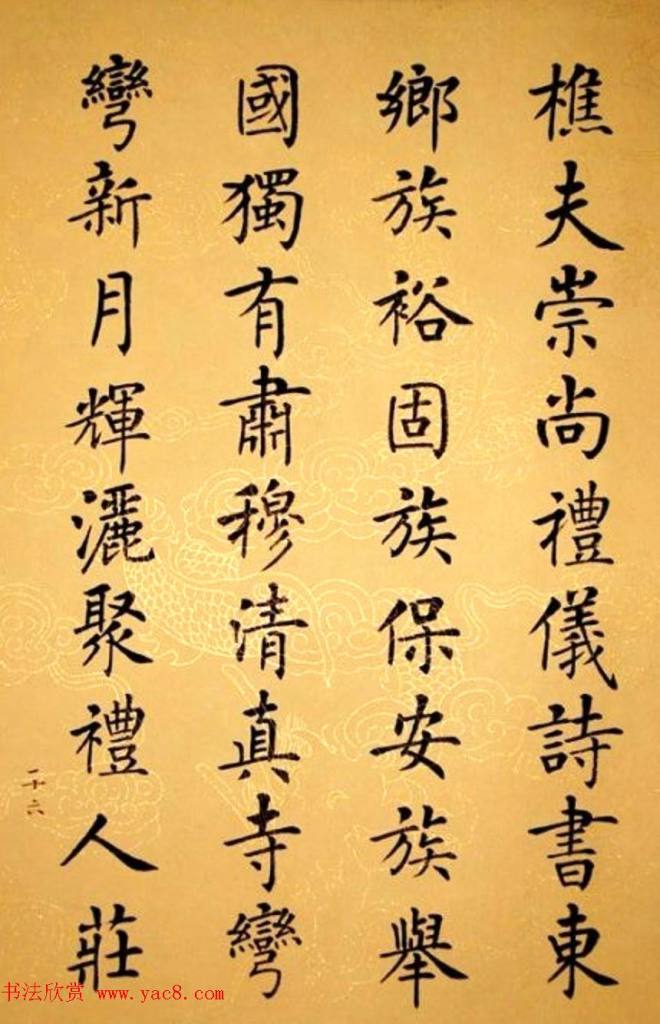 樵夫崇尚禮儀詩書東
鄉族裕固族保安族舉
國獨有肅穆清真寺彎
彎新月輝灑聚禮人莊
二十六
书法欣赏 www.yac8.com